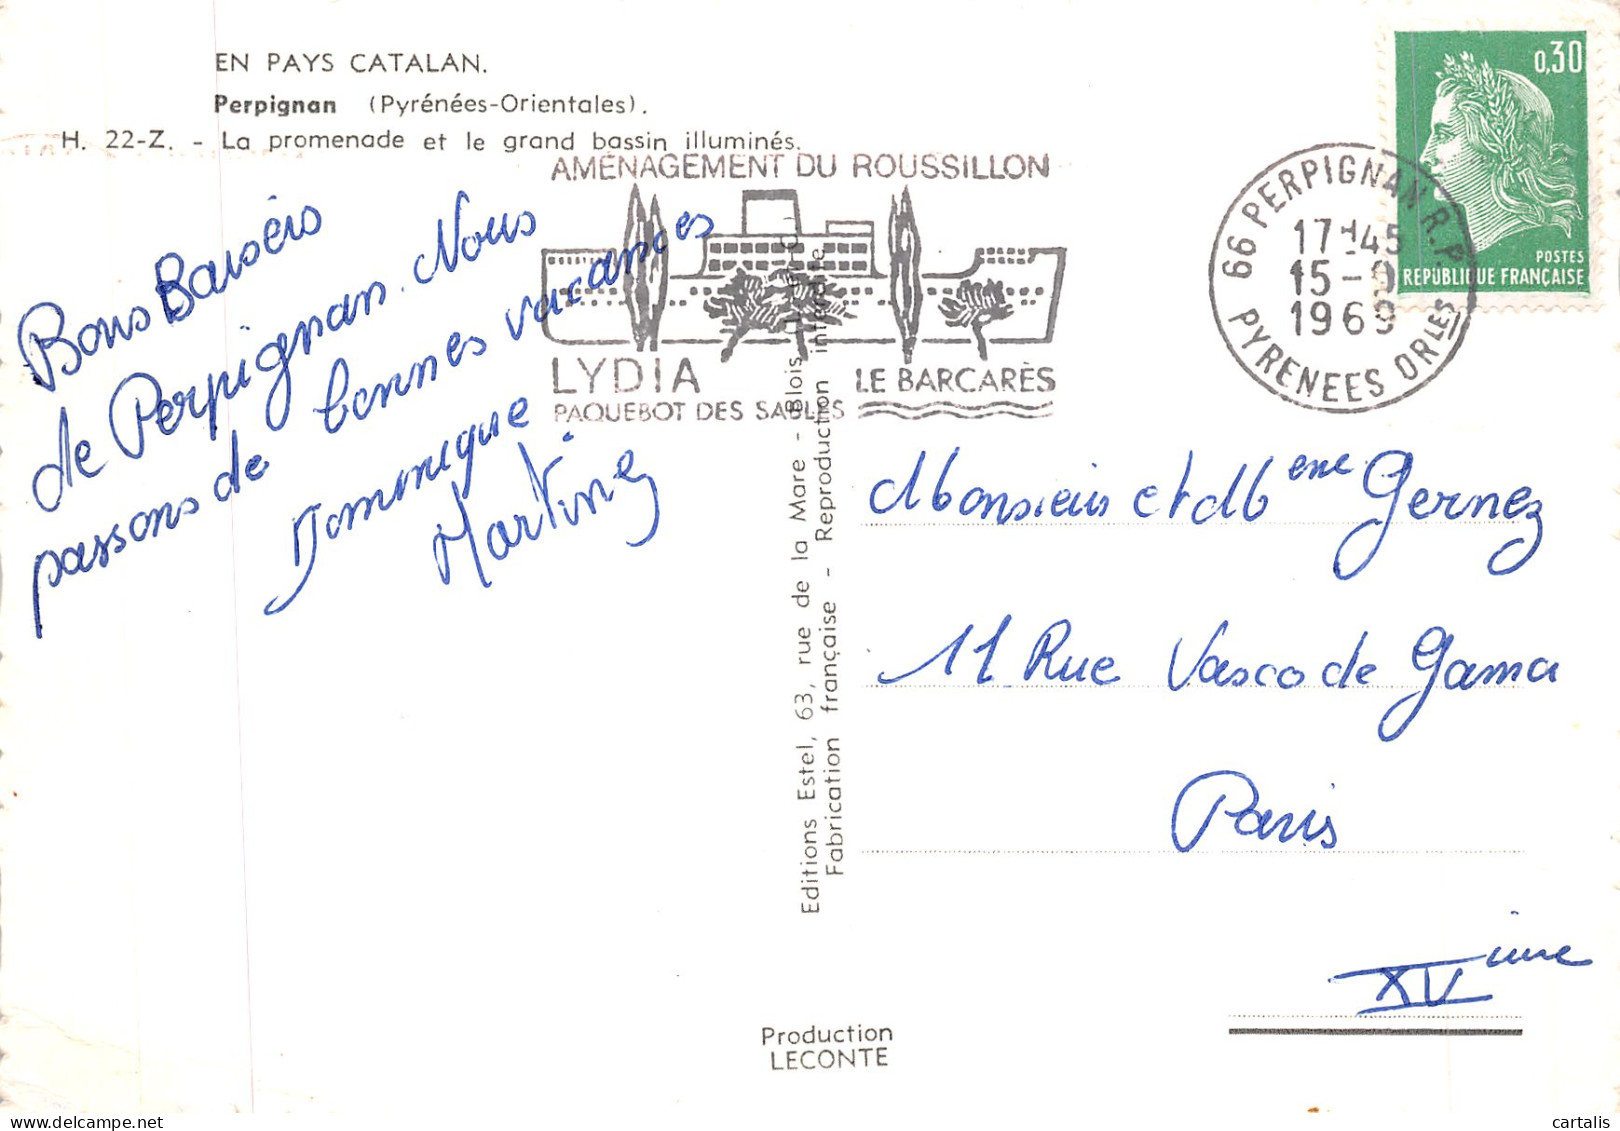 EN PAYS CATALAN.
Perpignan (Pyrénées-Orientales).
H. 22-Z. - La promenade et le grand bassin illuminés.
AMÉNAGEMENT DU ROUSSILLON
LYDIA
PAQUEBOT DES SABLES
LE BARCARÈS
66 PERPIGNAN R.P.
17H45
15-9
1969
PYRENEES ORLES
0,30
POSTES
REPUBLIQUE FRANÇAISE
Bons Baisers
de Perpignan. Nous
passons de bonnes vacances
Dominique
Martine
Editions Estel, 63, rue de la Mare - Blois
Fabrication française - Reproduction interdite
Monsieur et Mme Gernez
11 Rue Vasco de Gama
Paris
XVème
Production
LECONTE
cartalis